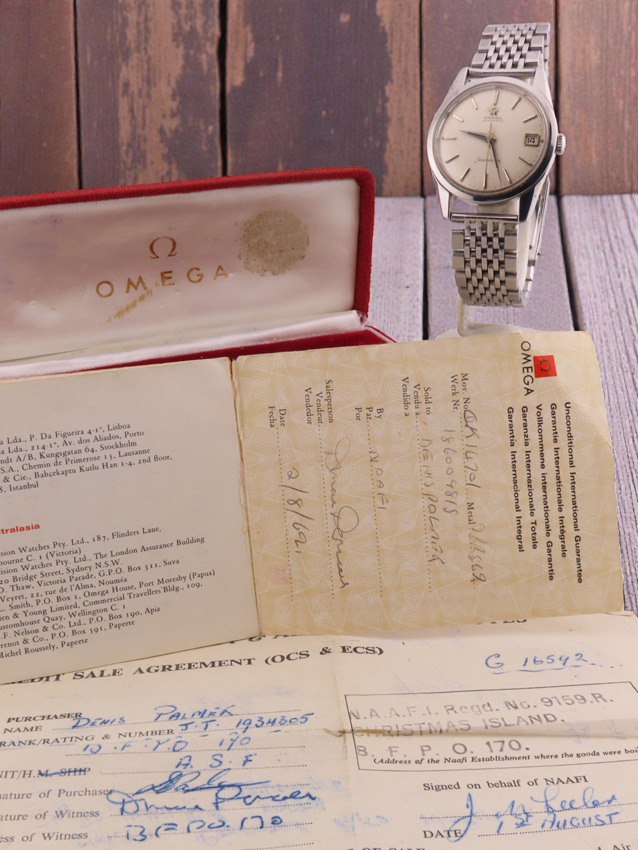 OMEGA
Ω
OMEGA
Ω
OMEGA
Unconditional International Guarantee
Garantie Internationale Intégrale
Vollkommene internationale Garantie
Garanzia Internazionale Totale
Garantía Internacional Integral
Mov. No. Metal
Werk Nr. 186004818
Sold to
Vendu à DENIS PALMER
Vendido a
By
Par NAAFI
Por
Salesperson
Vendeur
Vendedor
Date 2/8/62
Fecha
a Lda., P. Da Figueira 4-1°, Lisboa
Lda., 214-1°, Av. dos Aliados, Porto
A/B, Kungsgatan 64, Stockholm
S.A., Chemin de Primerose 15, Lausanne
& Cie., Bahçekaptu Kutlu Han 1-4, 2nd floor,
8, Istanbul
tralasia
sion Watches Pty. Ltd., 187, Flinders Lane,
bourne C. 1 (Victoria)
sion Watches Pty. Ltd., The London Assurance Building
20 Bridge Street, Sydney N.S.W.
D. Thaw, Victoria Parade, G.P.O. Box 311, Suva
Veyret, 22, rue de l'Alma, Nouméa
Smith, P.O. Box 1, Omega House, Port Moresby (Papua)
en & Young Limited, Commercial Travellers' Bldg., 109,
ustomhouse Quay, Wellington C. 1
F. Nelson & Co. Ltd., P.O. Box 190, Apia
renot & Co., P.O. Box 591, Papeete
Michel Roussely, Papeete
EDIT SALE AGREEMENT (OCS & ECS)
G 16592
PURCHASER
NAME DENIS PALMER
RANK/RATING & NUMBER J.T. 1934305
B.F.P.O 170
NIT/H.M. SHIP A.S.F
nature of Purchaser
nature of Witness
ess of Witness B.F.P.O. 170
N.A.A.F.I. Regd. No. 9159.R.
CHRISTMAS ISLAND.
B. F. P. O. 170.
(Address of the Naafi Establishment where the goods were bou
Signed on behalf of NAAFI
DATE 1ST AUGUST